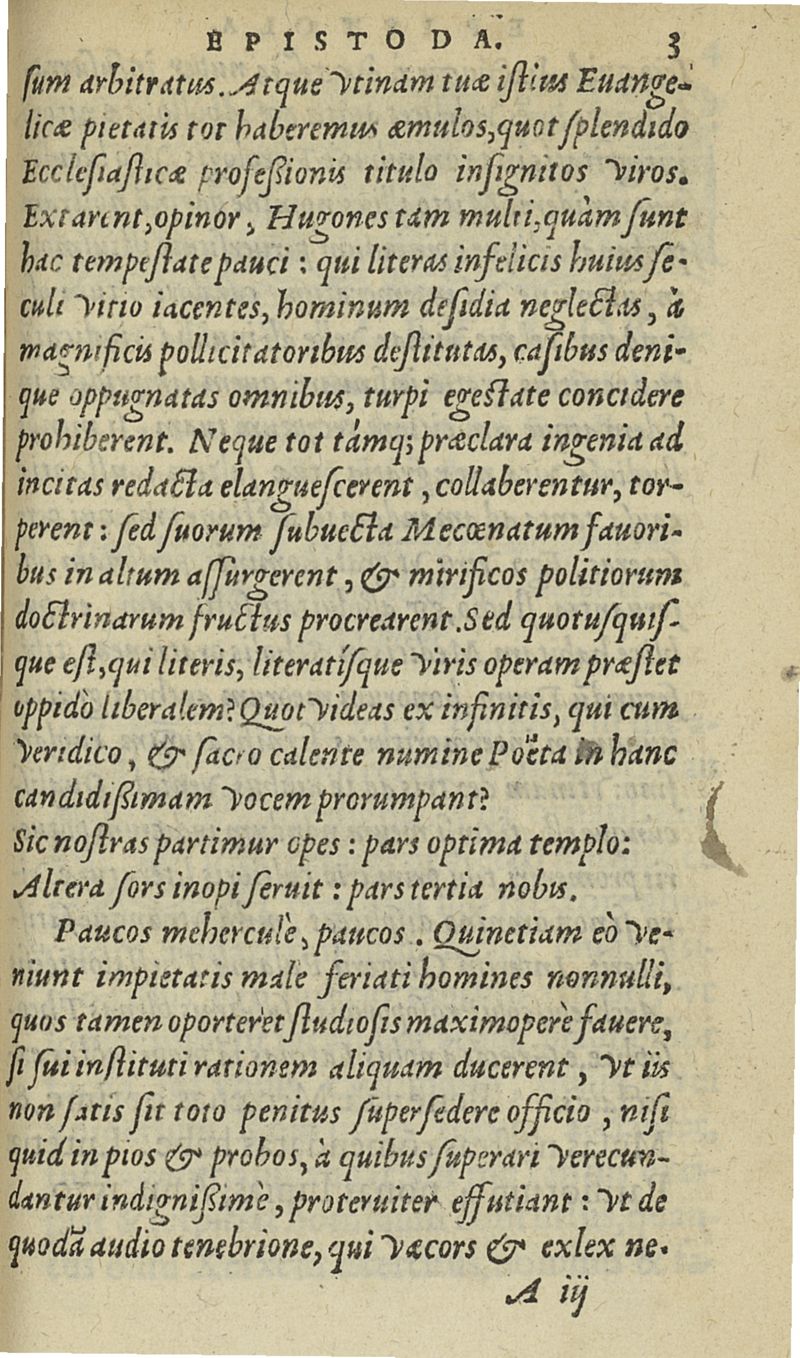 EPISTODA. 3
sum arbitratus. Atque vtinam tuæ istius Euange-
licæ pietatis tot haberemus æmulos, quot splendido
Ecclesiasticæ professionis titulo insignitos viros.
Extarent, opinor, Hugones tam multi, quàm sunt
hac tempestate pauci : qui literas infelicis huius se-
culi vitio iacentes, hominum desidia neglectas, à
magnificis pollicitatoribus destitutas, casibus deni-
que oppugnatas omnibus, turpi egestate concidere
prohiberent. Neque tot támq; præclara ingenia ad
incitas redacta elanguescerent, collaberentur, tor-
perent : sed suorum subuecta Mecœnatum fauori-
bus in altum assurgerent, & mirificos politiorum
doctrinarum fructus procrearent. Sed quotusquis-
que est, qui literis, literatísque viris operam præstet
oppidò liberalem? Quot videas ex infinitis, qui cum
veridico, & sacro calente numine Poëta in hanc
candidißimam vocem prorumpant?
Sic nostras partimur opes : pars optima templo:
Altera sors inopi seruit : pars tertia nobis.
Paucos meherculè, paucos. Quinetiam eò ve-
niunt impietatis male feriati homines nonnulli,
quos tamen oporteret studiosis maximoperè fauere,
si sui instituti rationem aliquam ducerent, vt iis
non satis sit toto penitus supersedere officio, nisi
quid in pios & probos, à quibus superari verecun-
dantur indignißimè, proteruiter effutiant : vt de
quodã audio tenebrione, qui væcors & exlex ne-
A iij